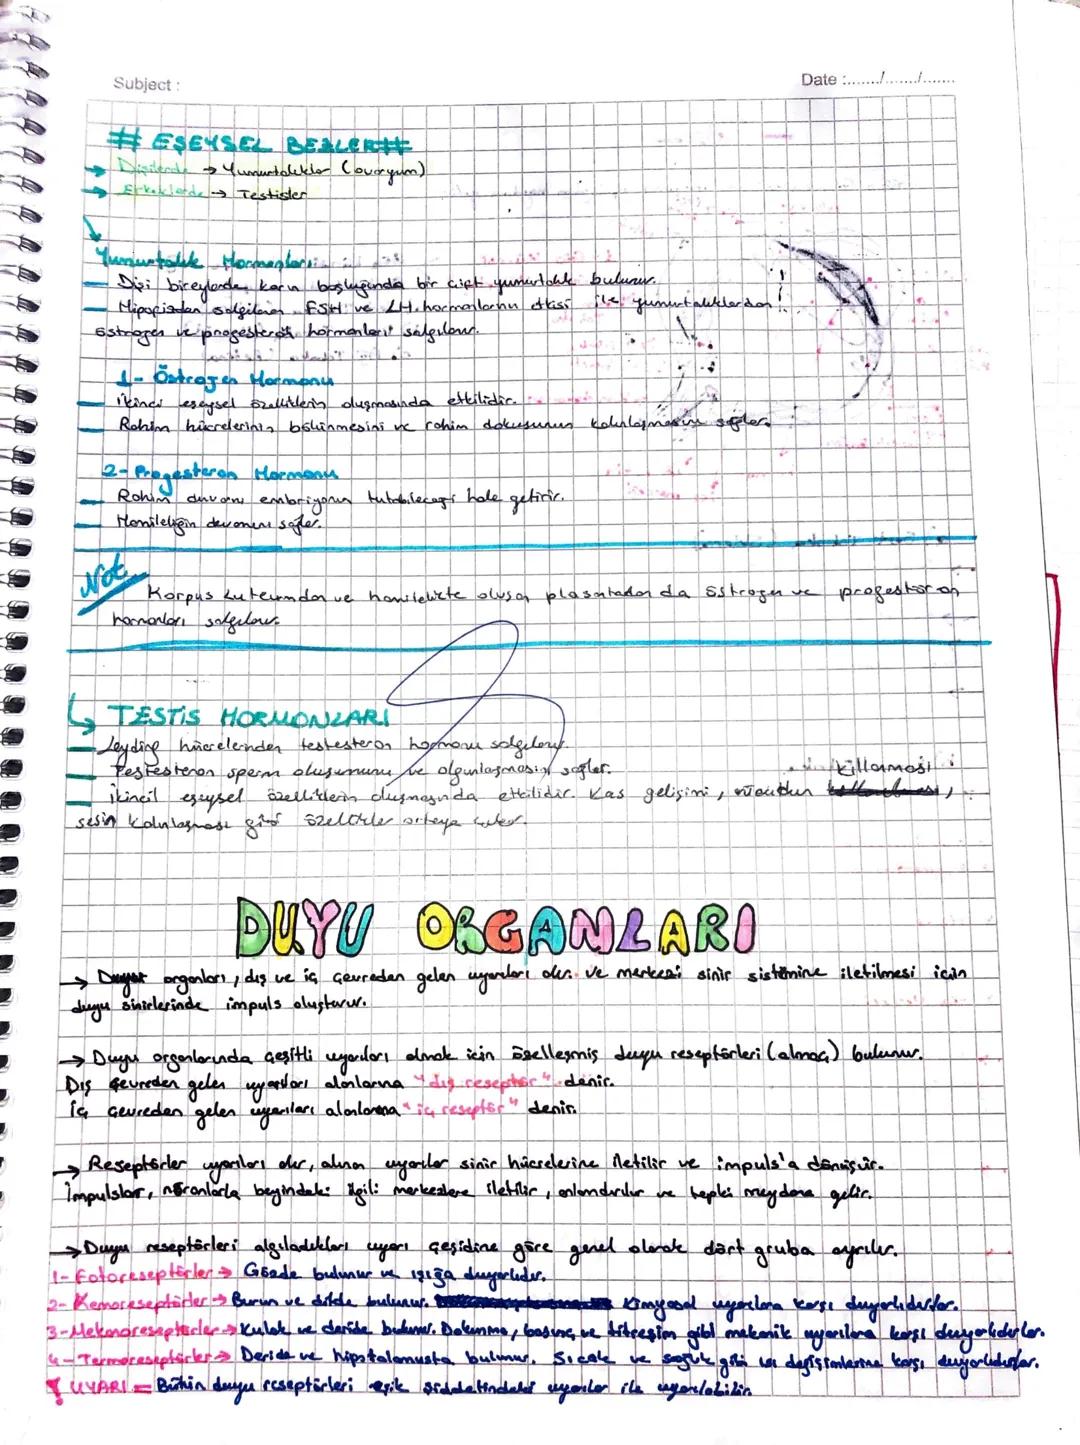 Subject :
Date :......../......../........
# EŞEYSEL BEZLER#
→ Dişilerde → Yumurtalıklar (ovaryum)
→ Erkeklerde → Testisler
Yumurtalık Hormonları
Dişi bireylerde karın boşluğunda bir çift yumurtalık bulunur.
Hipofizden salgılanan FSH ve LH hormonlarının etkisi ile yumurtalıklardan
östrogen ve progesteron hormonları salgılanır.
1- Östrojen Hormonu
İkinci eşeysel özelliklerin oluşmasında etkilidir.
Rahim hücrelerinin bölünmesini ve rahim dokusunun kalınlaşmasını sağlar.
2- Progesteron Hormonu
Rahim duvarını embriyonun tutabileceği hale getirir.
Hamileliğin devamını sağlar.
Not
Korpus luteumdan ve hamilelikte oluşan plasentadan da östrogen ve progesteron
hormonları salgılanır.
↳ TESTİS HORMONLARI
Leyding hücrelerinden testesteron hormonu salgılanır.
Testesteron sperm oluşumunu ve olgunlaşmasını sağlar.
killanması
ikincil eşeysel özelliklerin oluşmasında etkilidir. Kas gelişimi, vücudun ,
sesin kalınlaşması gibi özellikler ortaya çıkar.
DUYU ORGANLARI
→ Duyu organları, dış ve iç çevreden gelen uyarıları alır. ve merkezi sinir sistemine iletilmesi için
duyu sinirlerinde impuls oluşturur.
→ Duyu organlarında çeşitli uyarıları almak için özelleşmiş duyu reseptörleri (almaç) bulunur.
Dış çevreden gelen uyarıları alanlarına "dış reseptör" denir.
İç çevreden gelen uyarıları alanlarına "iç reseptör" denir.
→ Reseptörler uyarıları alır, alınan uyarılar sinir hücrelerine iletilir ve impuls'a dönüşür.
İmpulslar, nöronlarla beyindeki ilgili merkezlere iletilir, anlamdırılır ve tepki meydana gelir.
→ Duyu reseptörleri algıladıkları uyarı çeşidine göre genel olarak dört gruba ayrılır.
1- Fotoreseptörler → Gözde bulunur ve ışığa duyarlıdır.
2- Kemoreseptörler → Burun ve dilde bulunur. Kimyasal uyarılara karşı duyarlıdırlar.
3- Mekanoreseptörler → Kulak ve deride bulunur. Dokunma, basınç ve titreşim gibi mekanik uyarılara karşı duyarlıdırlar.
4- Termoreseptörler → Deride ve hipotalamusta bulunur. Sıcak ve soğuk gibi ısı değişimlerine karşı duyarlıdırlar.
! UYARI = Bütün duyu reseptörleri eşik şiddetindeki uyarılar ile uyarılabilir.